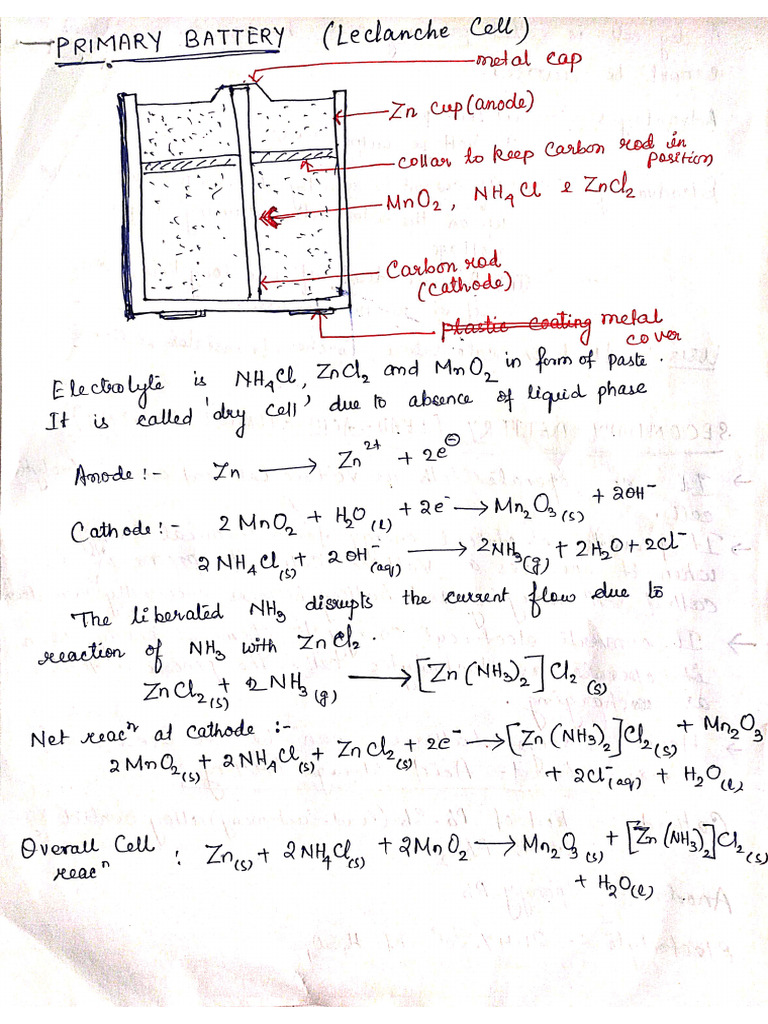 PRIMARY BATTERY (Leclanche Cell)
metal cap
Zn cup (anode)
collar to keep carbon rod in position
MnO2, NH4Cl & ZnCl2
Carbon rod
(cathode)
plastic coating metal cover
Electrolyte is NH4Cl, ZnCl2 and MnO2 in form of paste.
It is called 'dry cell' due to absence of liquid phase
Anode :- Zn ⟶ Zn²⁺ + 2e⊖
Cathode :- 2MnO2 + H2O(l) + 2e⁻ ⟶ Mn2O3(s) + 2OH⁻
2NH4Cl(s) + 2OH⁻(aq) ⟶ 2NH3(g) + 2H2O + 2Cl⁻
The liberated NH3 disrupts the current flow due to
reaction of NH3 with ZnCl2.
ZnCl2(s) + 2NH3(g) ⟶ [Zn(NH3)2]Cl2(s)
Net reacⁿ at cathode :-
2MnO2(s) + 2NH4Cl(s) + ZnCl2(s) + 2e⁻ ⟶ [Zn(NH3)2]Cl2(s) + Mn2O3
+ 2Cl⁻(aq) + H2O(l)
Overall Cell reacⁿ : Zn(s) + 2NH4Cl(s) + 2MnO2 ⟶ Mn2O3(s) + [Zn(NH3)2]Cl2(s)
+ H2O(l)